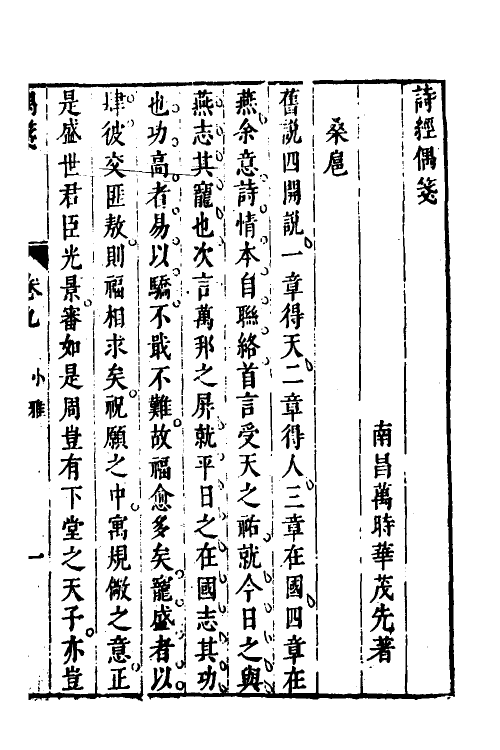 詩經偶箋
南昌萬時華茂先著
桑扈
舊說四開說一章得天二章得人三章在國四章在
燕余意詩情本自聯絡首言受天之祜就今日之與
燕志其寵也次言萬邦之屏就平日之在國志其功
也功高者易以驕不戢不難故福愈多矣寵盛者以
肆彼交匪敖則福相求矣祝願之中寓規儆之意正
是盛世君臣光景審如是周豈有下堂之天子亦豈
偶箋
卷九
小雅
一